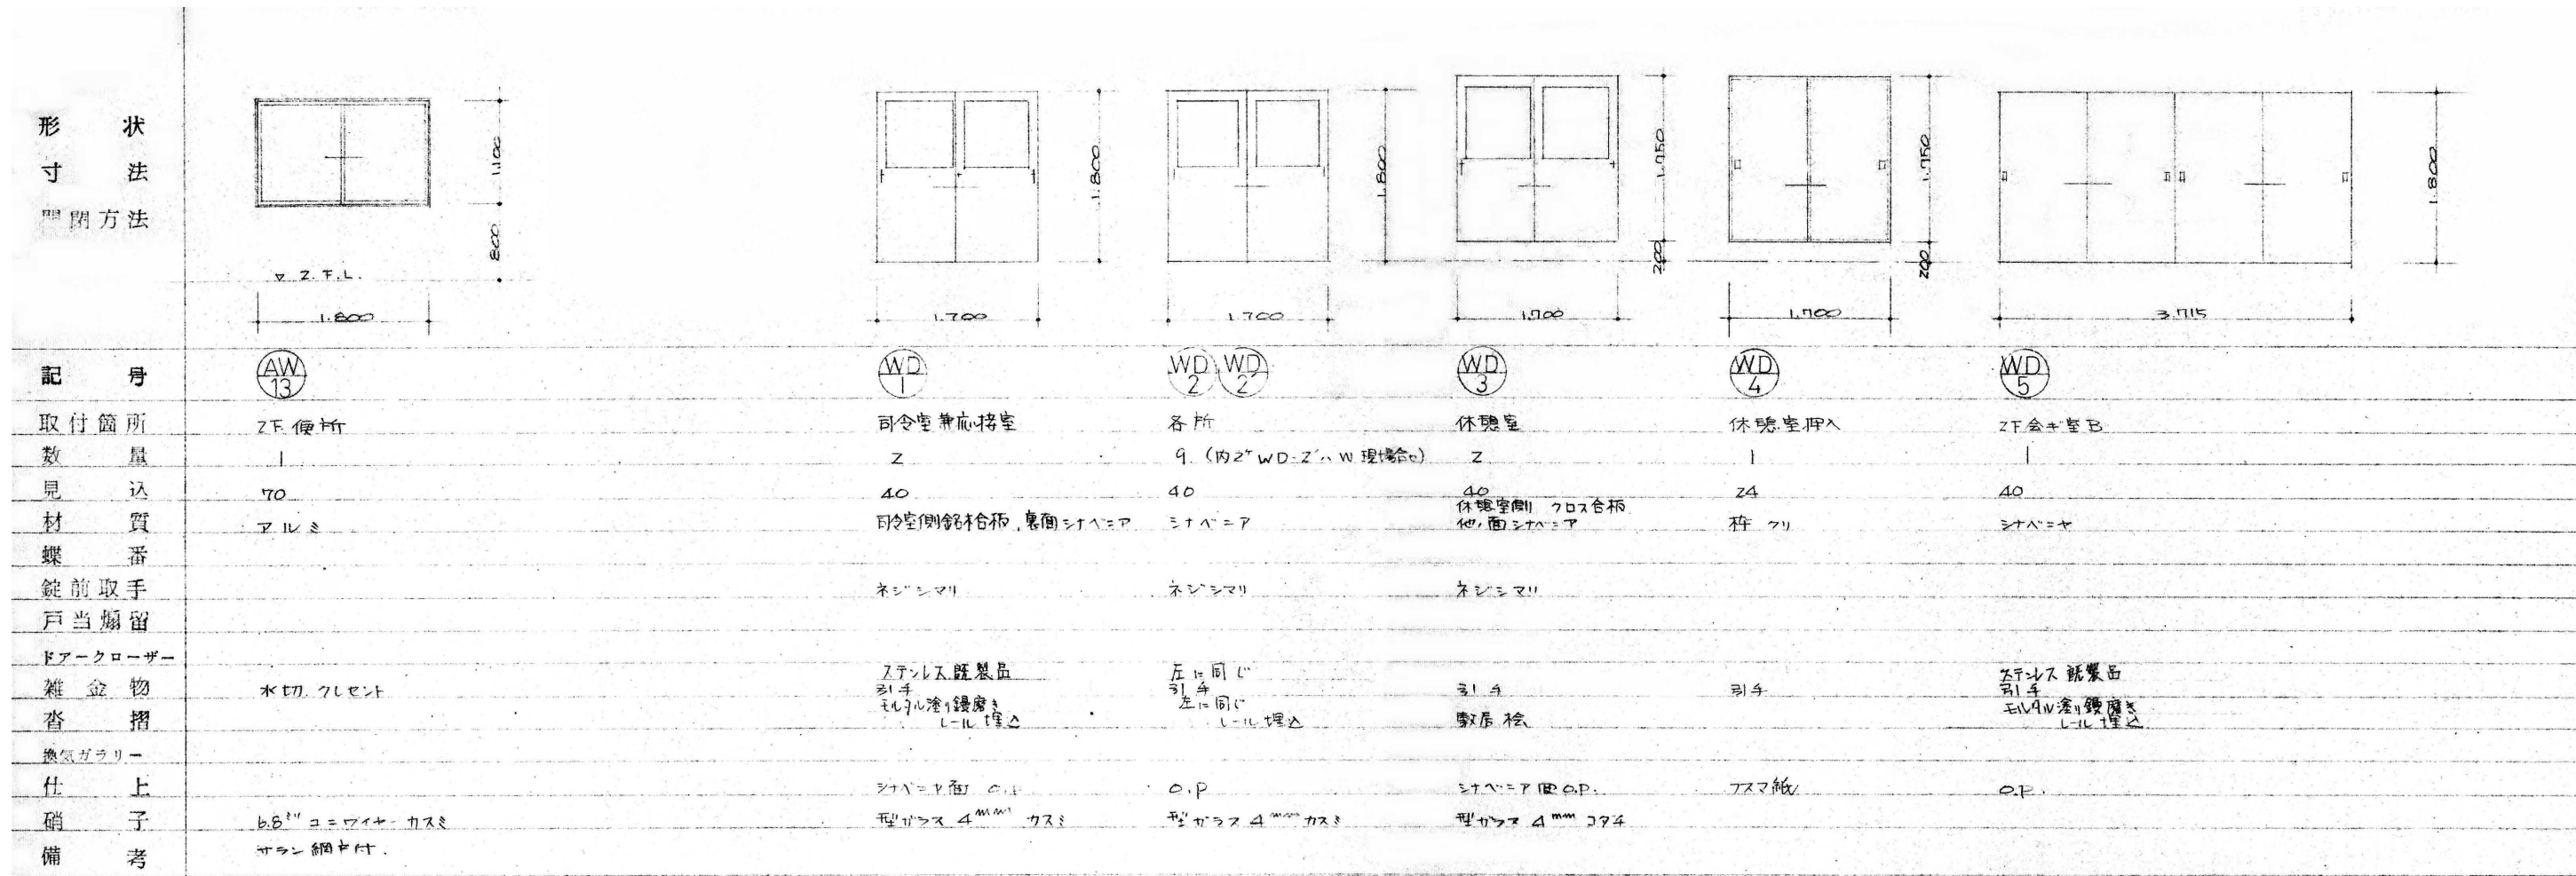 形状
寸法
開閉方法
1.100
800
▽ 2.F.L.
1.800
1.800
1.700
1.800
1.700
1.750
200
1.700
1.750
200
1.700
1.800
3.715
記号 AW 13 WD 1 WD 2 WD 2' WD 3 WD 4 WD 5
取付箇所 2F.便所 司令室兼応接室 各所 休憩室 休憩室押入 2F会ギ室B
数量 1 2 9. (内2ケ WD-2'ハ W 現場合セ) 2 1 1
見込 70 40 40 40 24 40
材質 アルミ 司令室側銘木合柄、裏面シナベニア シナベニア 休憩室側 クロス合柄 他ノ面シナベニア 枠 クリ シナベニヤ
蝶番
錠前取手 ネジシマリ ネジシマリ ネジシマリ
戸当煽留
ドアークローザー
雑金物 水切.クレセント ステンレス既製品 引手 左に同じ 引手 引手 引手 ステンレス既製品 引手
沓摺 モルタル塗り鏝磨き レール埋込 左に同じ レール埋込 敷居 桧 モルタル塗り鏝磨き レール埋込
換気ガラリー
仕上 シナベニヤ面 O.P O.P シナベニア面O.P. フスマ紙 O.P.
硝子 6.8 ユニワイヤー カスミ 型ガラス 4mm カスミ 型ガラス 4mm カスミ 型ガラス 4mm コダチ
備考 サラン網戸付.